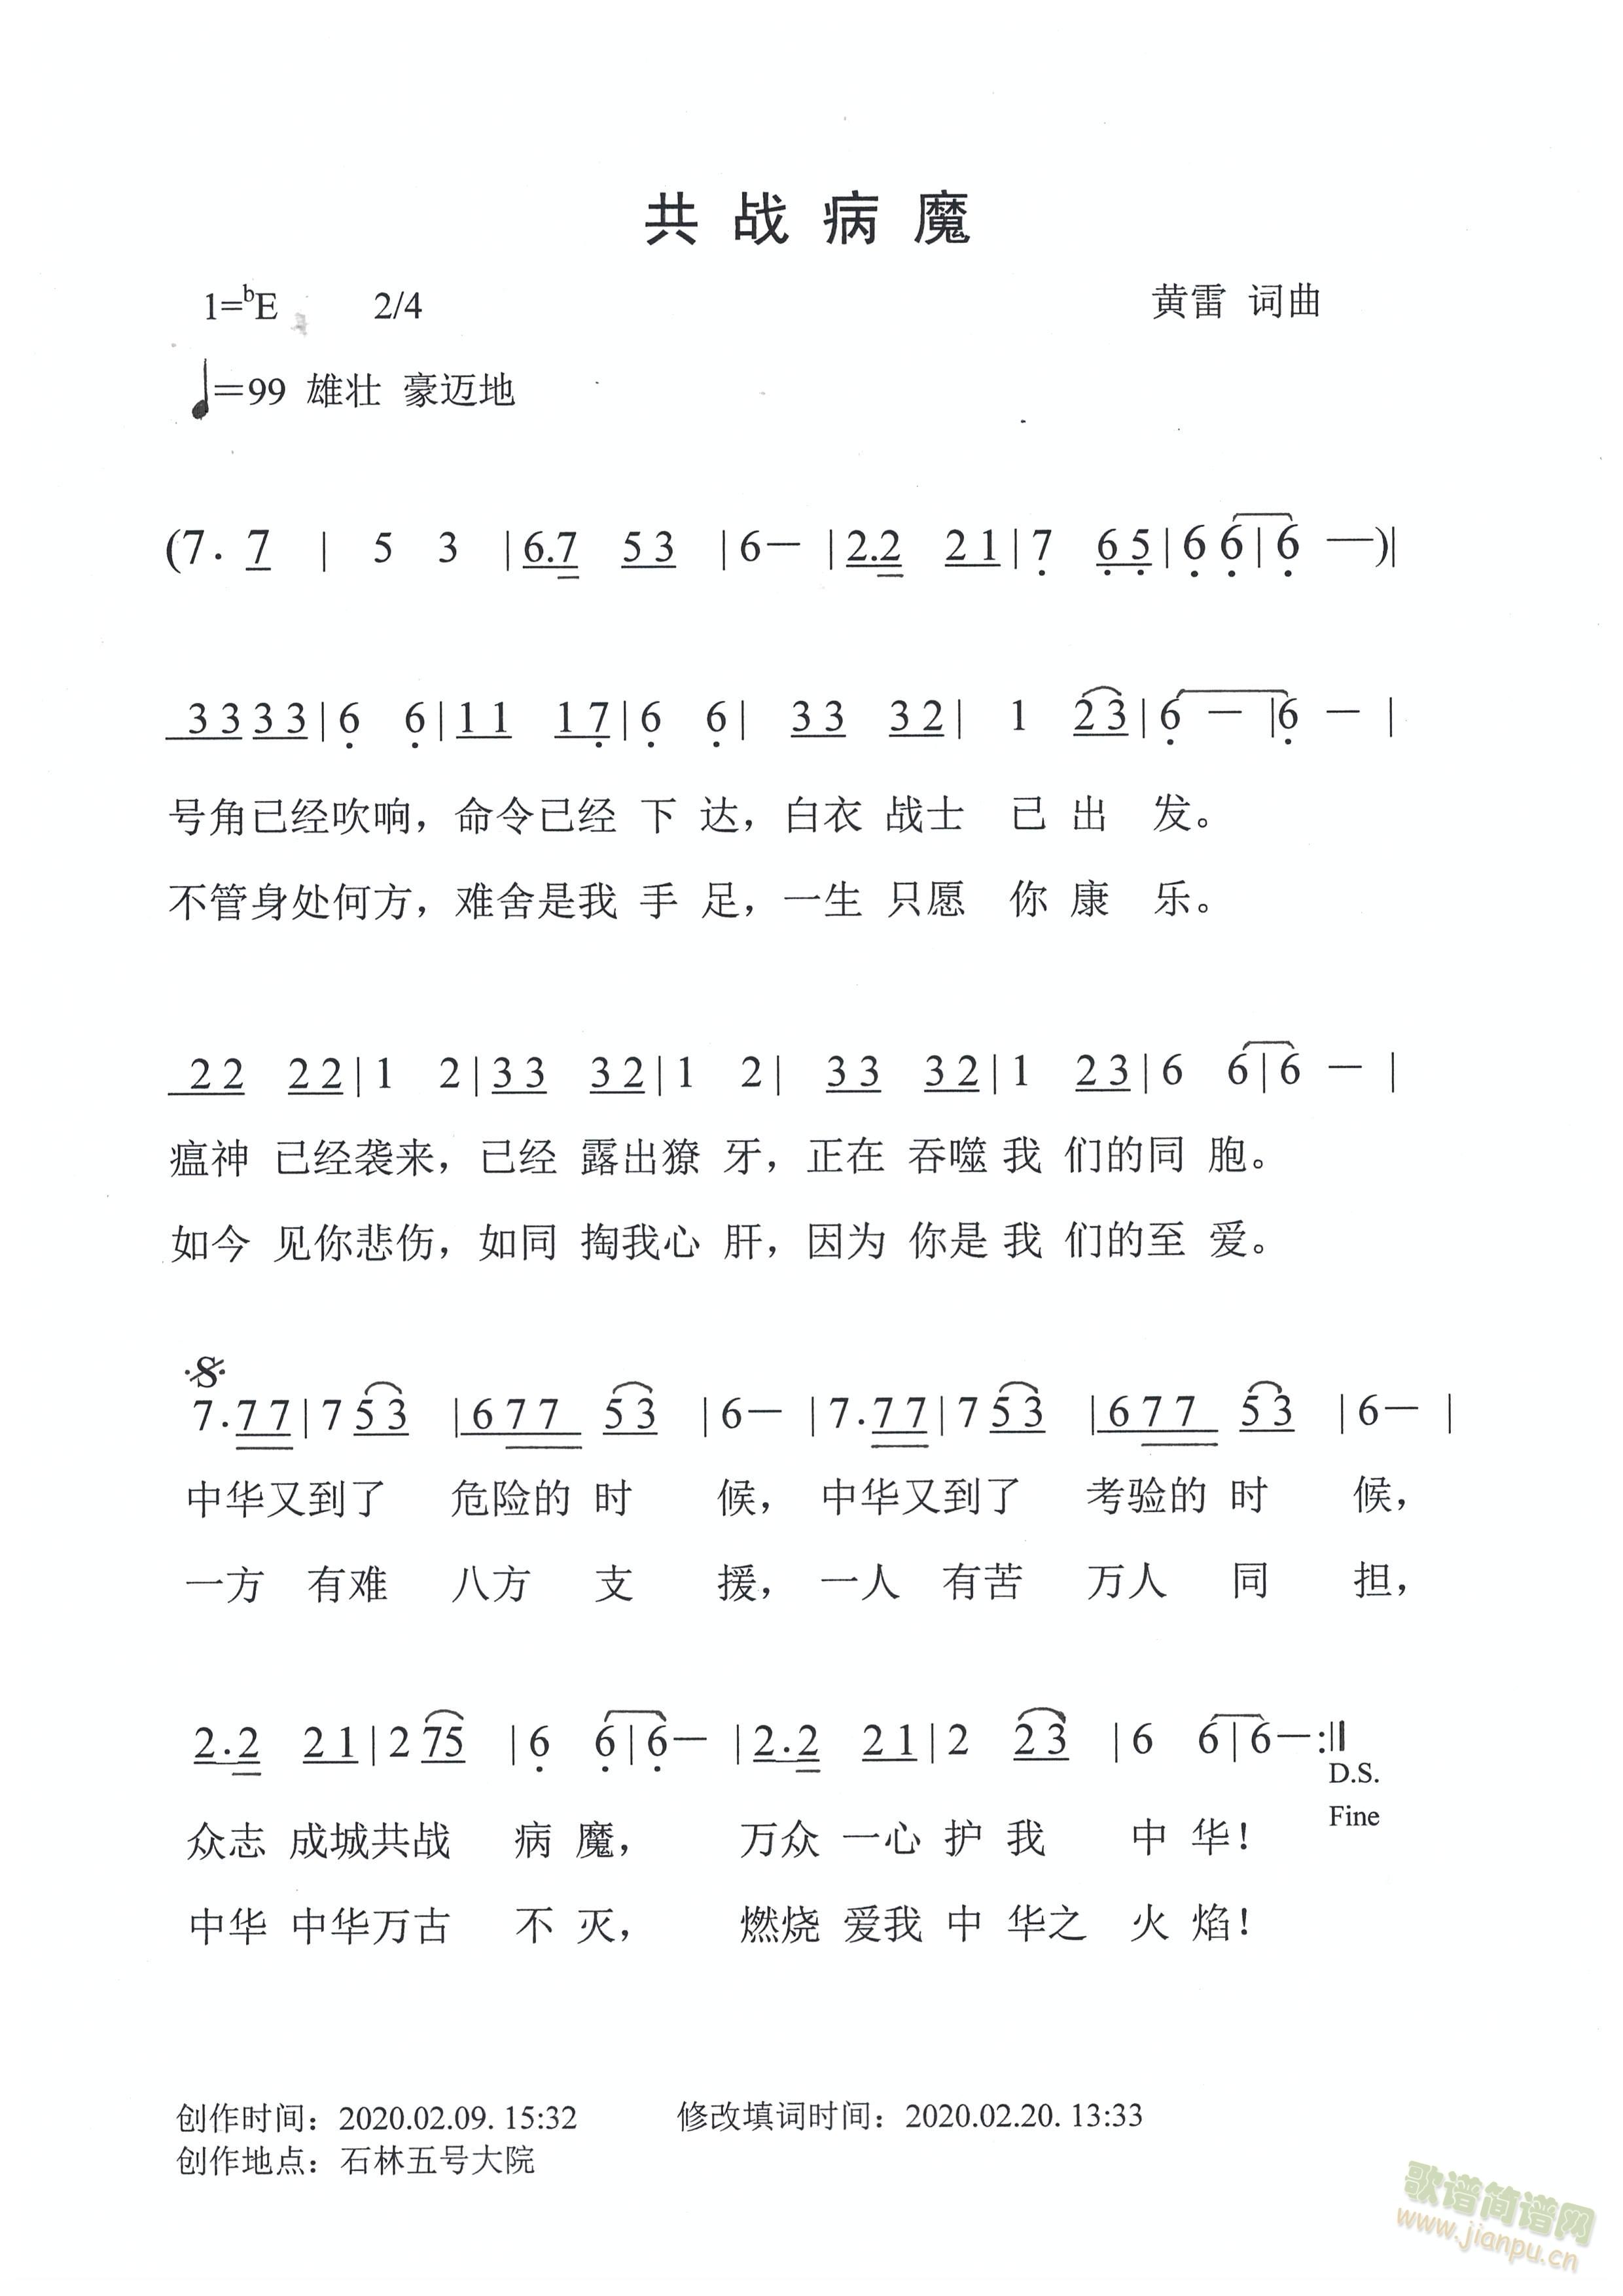 共 战 病 魔
1=ᵇE 2/4 黄雷 词曲
♩=99 雄壮 豪迈地
(7. 7 | 5 3 | 6.7 5 3 | 6— | 2.2 2 1 | 7 6 5 | 6 6 | 6 —)|
3 3 3 3 | 6 6 | 1 1 1 7 | 6 6 | 3 3 3 2 | 1 2 3 | 6 — | 6 — |
号角已经吹响，命令已经 下 达，白衣 战士 已 出 发。
不管身处何方，难舍是我 手 足，一生 只愿 你 康 乐。
2 2 2 2 | 1 2 | 3 3 3 2 | 1 2 | 3 3 3 2 | 1 2 3 | 6 6 | 6 — |
瘟神 已经袭来，已经 露出獠 牙，正在 吞噬 我 们的同 胞。
如今 见你悲伤，如同 掏我心 肝，因为 你是 我 们的至 爱。
𝄋
7.7 7 | 7 5 3 | 6 7 7 5 3 | 6— | 7.7 7 | 7 5 3 | 6 7 7 5 3 | 6— |
中华又到了 危险的 时 候，中华又到了 考验的 时 候，
一方 有难 八方 支 援，一人 有苦 万人 同 担，
2.2 2 1 | 2 7 5 | 6 6 | 6— | 2.2 2 1 | 2 2 3 | 6 6 | 6—:‖
D.S.
Fine
众志 成城共战 病 魔， 万众 一心 护 我 中 华！
中华 中华万古 不 灭， 燃烧 爱我 中 华之 火 焰！
创作时间：2020.02.09. 15:32 修改填词时间：2020.02.20. 13:33
创作地点：石林五号大院
歌谱简谱网
www.jianpu.cn